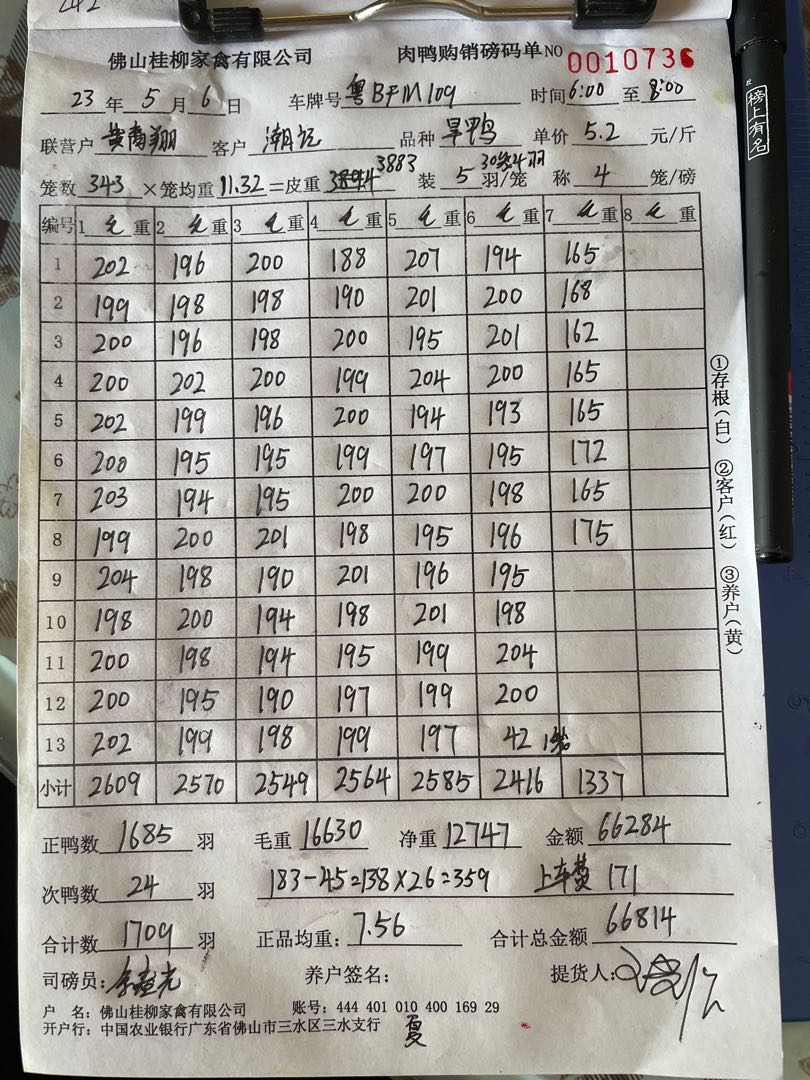 佛山桂柳家禽有限公司 肉鸭购销磅码单 NO 0010736
23 年 5 月 6 日 车牌号 粤BFM109 时间 6:00 至 8:00
联营户 客户 品种 旱鸭 单价 5.2 元/斤
笼数 343 ×笼均重 11.32 =皮重 3883 装 5 羽/笼 称 4 笼/磅
编号 1 毛 重 2 毛 重 3 毛 重 4 毛 重 5 毛 重 6 毛 重 7 毛 重 8 毛 重
1 202 196 200 188 207 194 165
2 199 198 198 190 201 200 168
3 200 196 198 200 195 201 162
4 200 202 200 199 204 200 165
5 202 199 196 200 194 193 165
6 200 195 195 199 197 195 172
7 203 194 195 200 200 198 165
8 199 200 201 198 195 196 175
9 204 198 190 201 196 195
10 198 200 194 198 201 198
11 200 198 194 195 199 204
12 200 195 190 197 199 200
13 202 199 198 199 197 42 1笼
小计 2609 2570 2549 2564 2585 2416 1337
正鸭数 1685 羽 毛重 16630 净重 12747 金额 66284
次鸭数 24 羽 183-45=138×26=359 上车费 171
合计数 1709 羽 正品均重: 7.56 合计总金额 66814
司磅员: 养户签名: 提货人:
户 名: 佛山桂柳家禽有限公司 账号: 444 401 010 400 169 29
开户行: 中国农业银行广东省佛山市三水区三水支行 夏
①存根(白) ②客户(红) ③养户(黄)
榜上有名